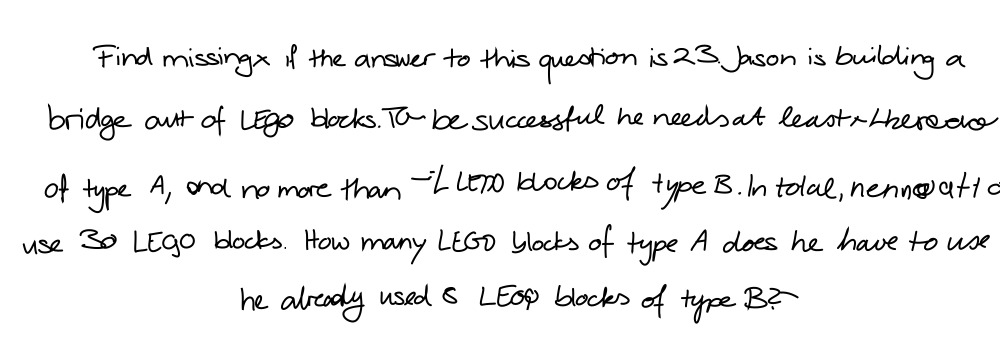 Find missing x if the answer to this question is 23. Jason is building a
bridge out of LEGO blocks. To be successful he needs at least x
of type A, and no more than blocks of type B. In total,
use 30 LEGO blocks. How many LEGO blocks of type A does he have to use
he already used LEGO blocks of type B?